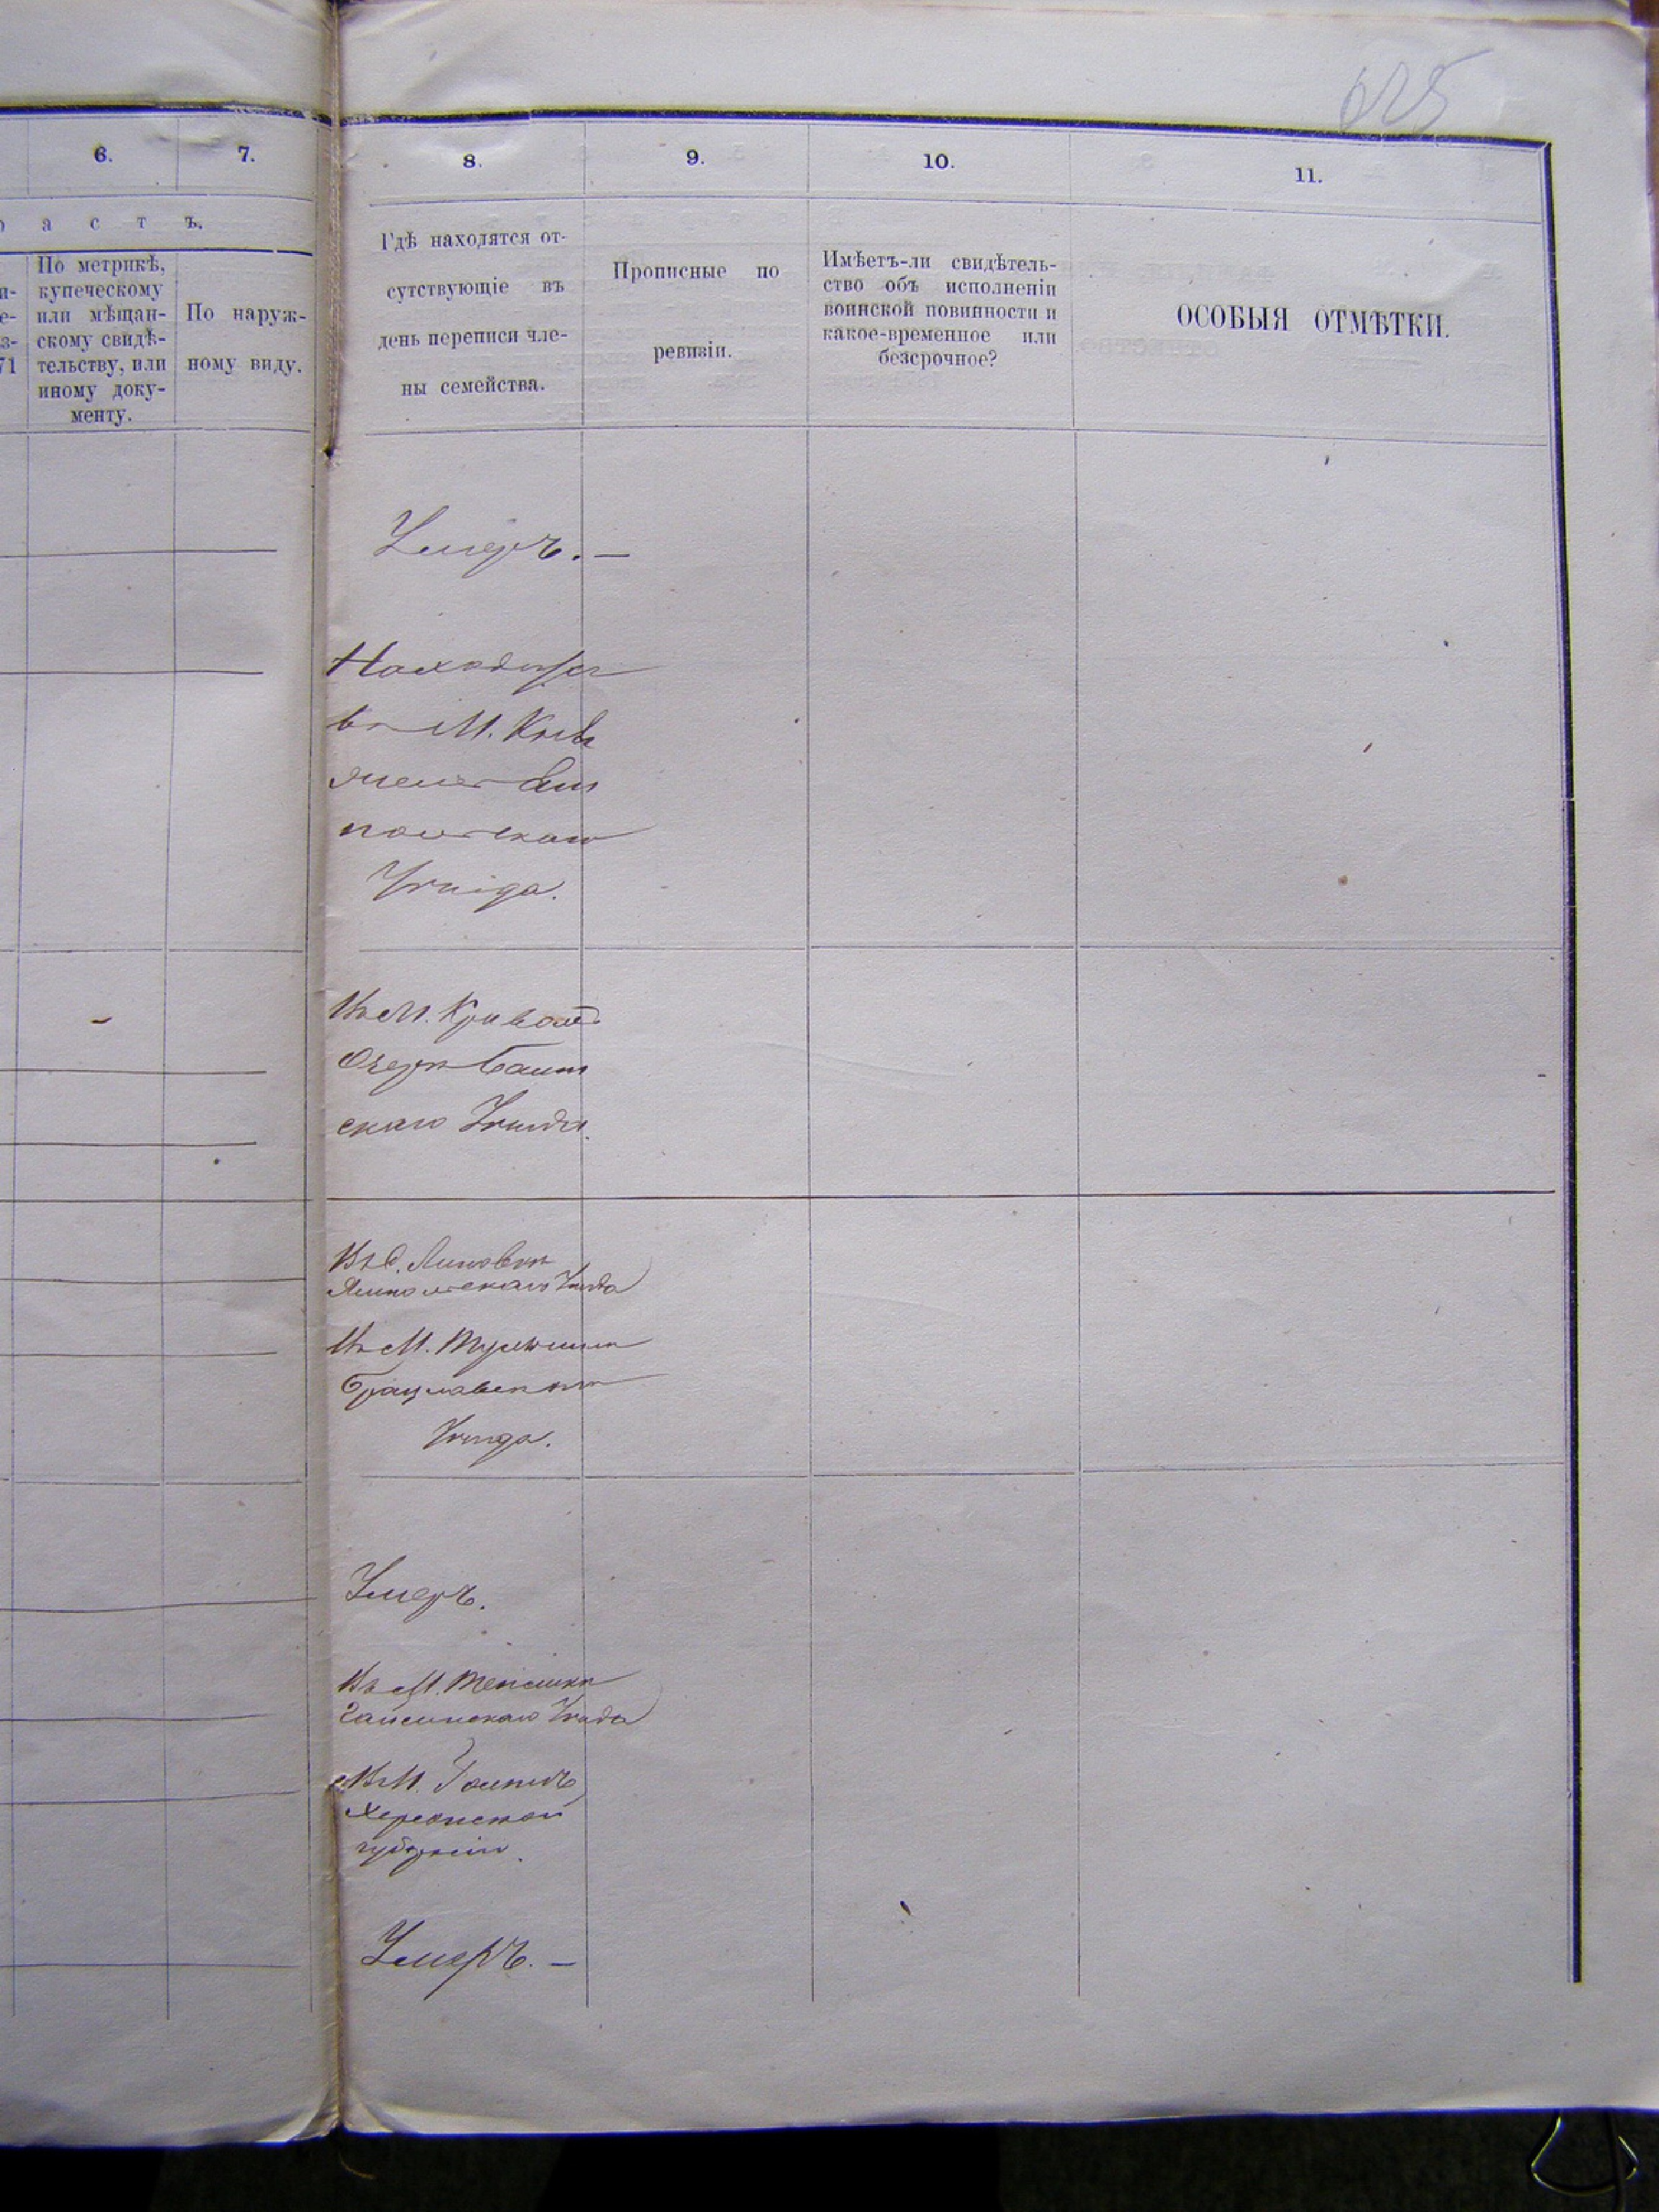 625
6.
7.
8.
9.
10.
11.
а с т ъ.
По метрикѣ,
купеческому
или мѣщан-
скому свидѣ-
тельству, или
иному доку-
менту.
71
По наруж-
ному виду.
Гдѣ находятся от-
сутствующіе въ
день переписи чле-
ны семейства.
Прописные по
ревизіи.
Имѣетъ-ли свидѣтель-
ство объ исполненіи
воинской повинности и
какое-временное или
безсрочное?
ОСОБЫЯ ОТМѢТКИ.
Умеръ. —
Находится
въ М.
польскаго
Уѣзда.
Въ М. Кривомъ
Озерѣ Балт
скаго Уѣзда.
Въ С.
Ямпольскаго Уѣзда
Въ М.
Брацлавскаго
Уѣзда.
Умеръ.
Въ М. Тепликѣ
Гайсинскаго Уѣзда
Въ М.
Херсонской
губерніи.
Умеръ. —